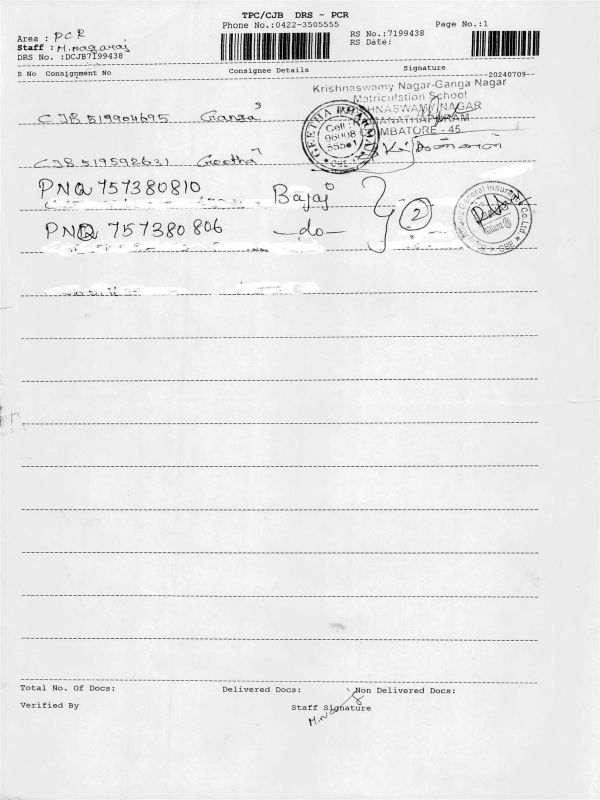 TPC/CJB DRS - PCR
Phone No.:0422-3505555
Page No.:1
Area : PCR
RS No.:7199438
Staff : M.nagaraj
RS Date:
DRS No. :DCJB7199438
S No Consignment No Consignee Details Signature
--20240709--
Krishnaswamy Nagar-Ganga Nagar
Matriculation School
CJB 519904695 Ganga
COIMBATORE - 45
GEETHA PHARMA
Cell :
96008
55501
CBE
CJB 519598631 Geetha
PNQ 757380810 Bajaj
PNQ 757380806 -do- 2
General Insurance Co Ltd
CBE
Total No. Of Docs: Delivered Docs: Non Delivered Docs:
Verified By Staff Signature